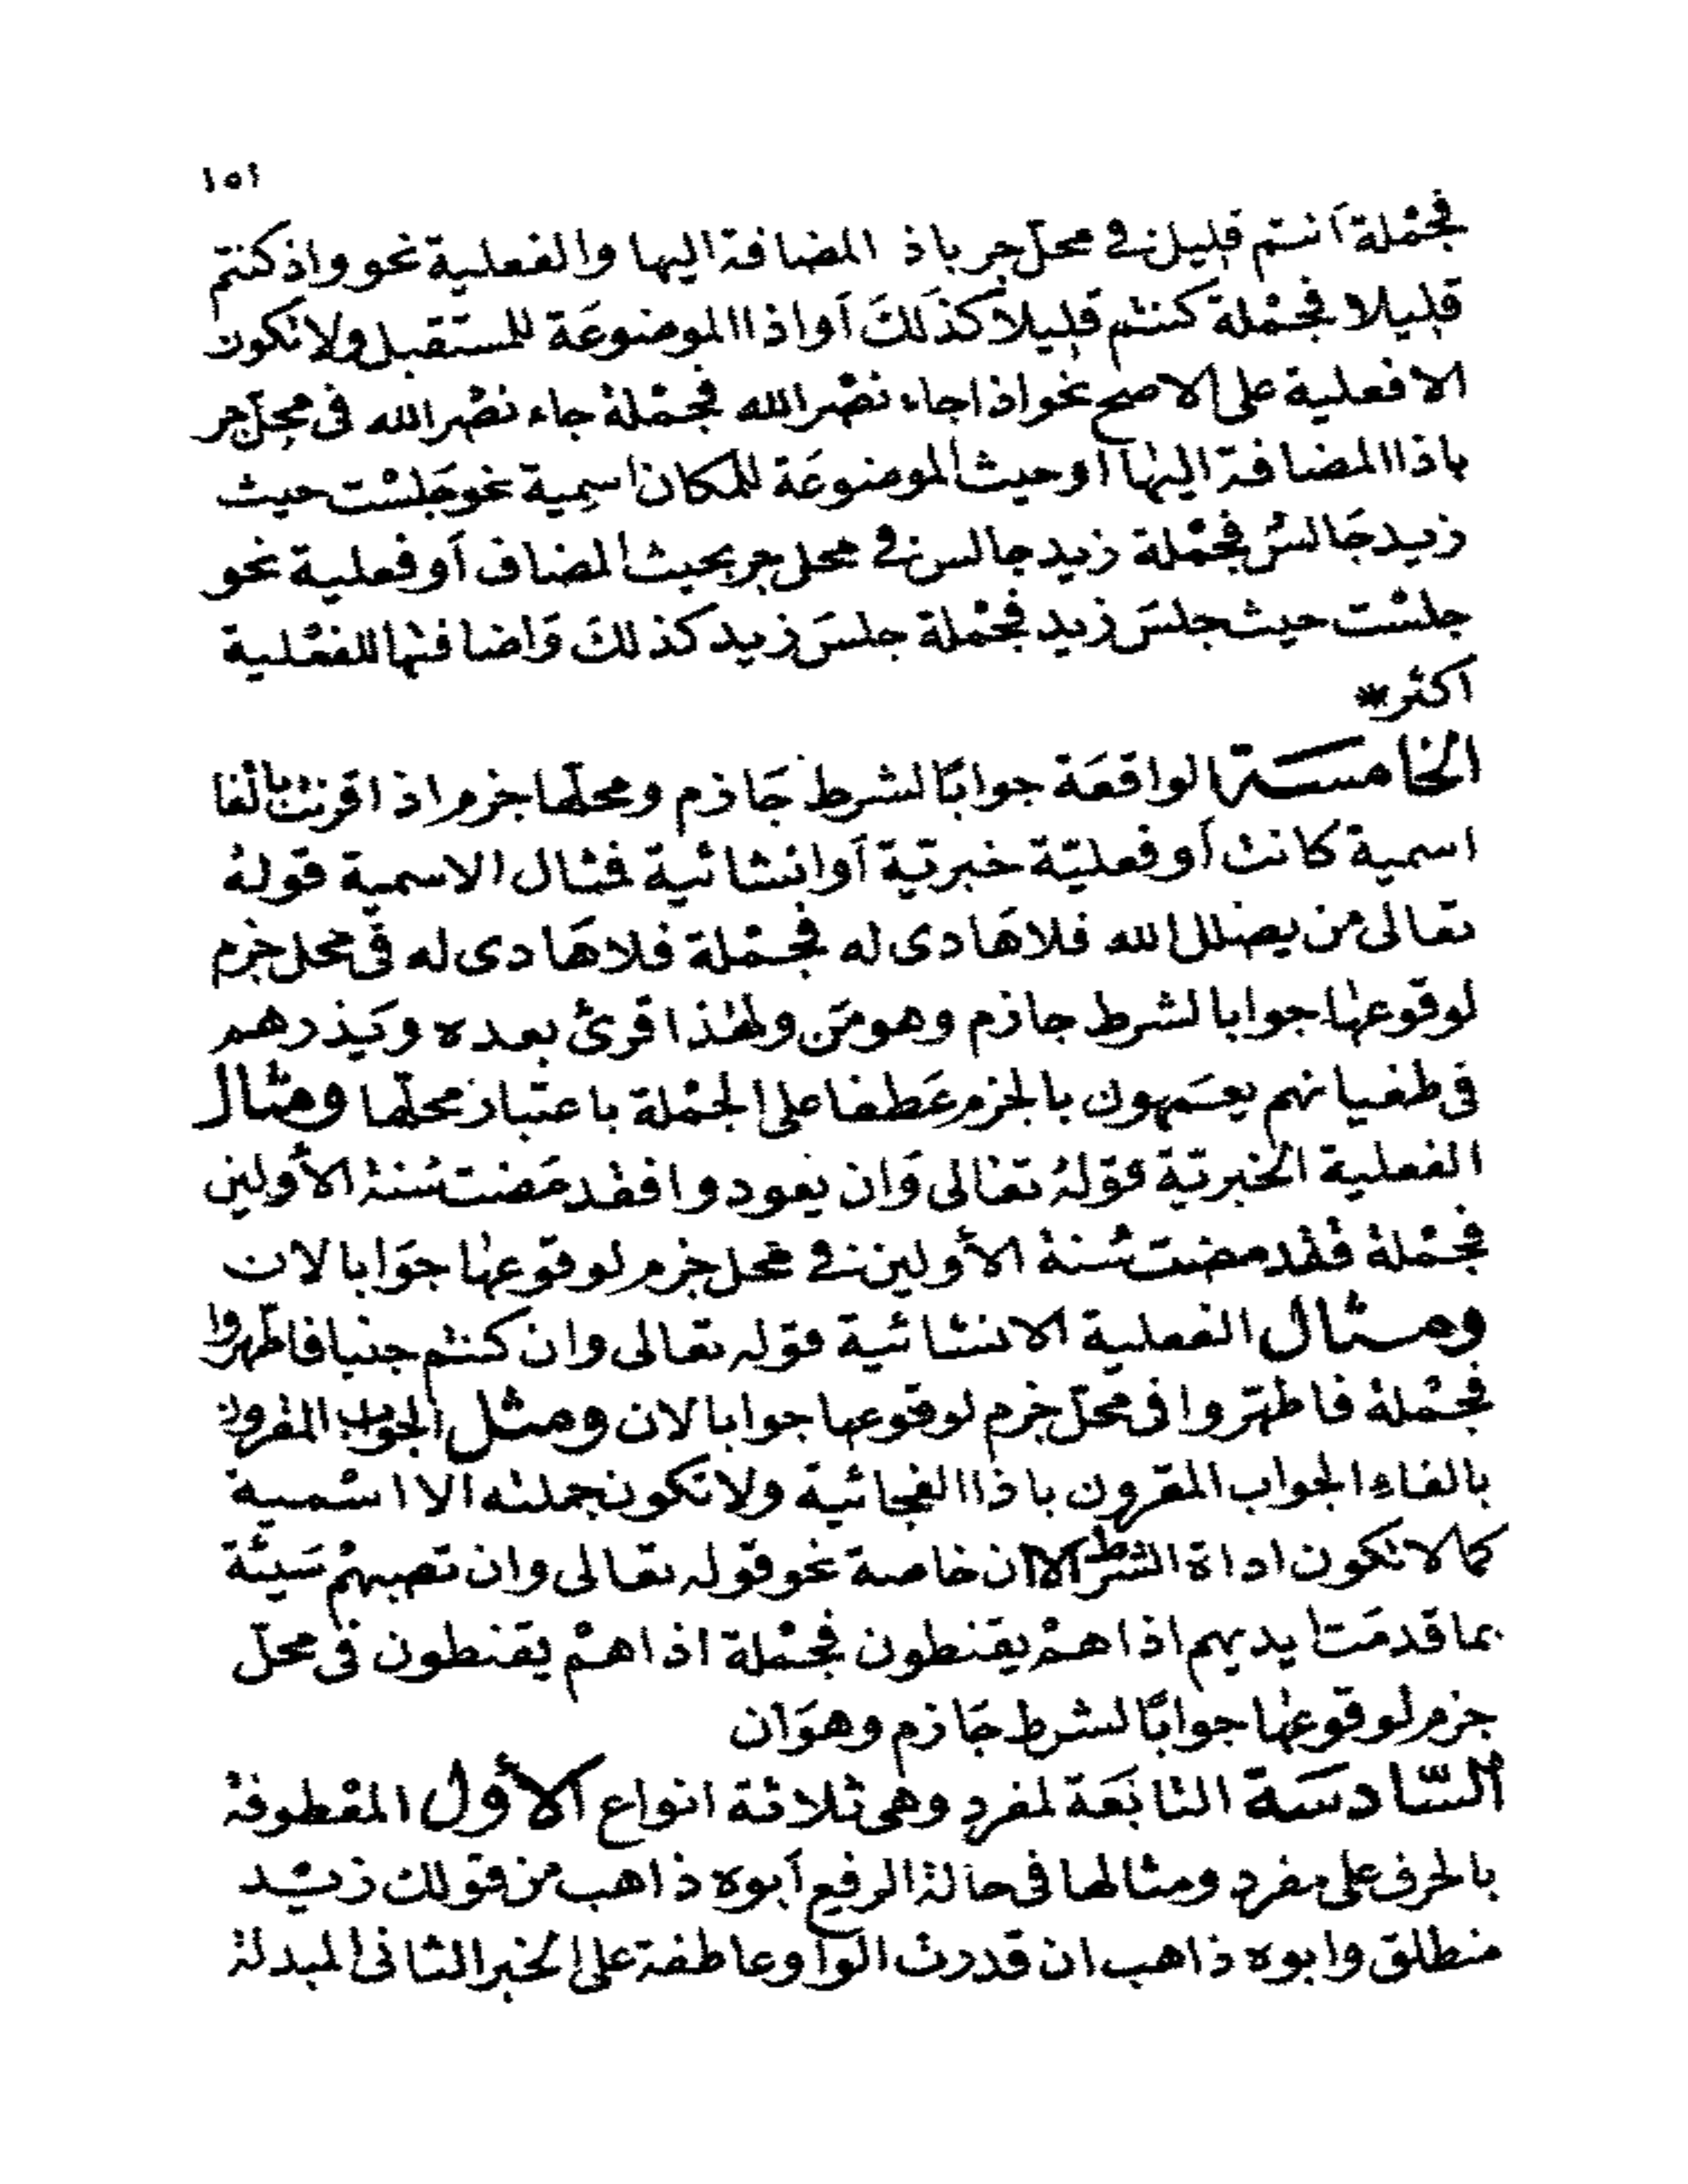 ١٥١
فجمْلة أنتم قليل في محلّ جر باذ المضافة اليها والفعلية نحو واذ كنتم
قليلا فجمْلة كنتم قليلا كذلكَ أو اذا الموضوعَة للمستقبل ولا تكون
الا فعلية على الاصح نحو اذا جاء نصْر الله فجمْلة جاء نصْر الله فى محلّ جر
باذا المضافة اليها أو حيث الموضوعَة للمكان اسمِية نحو جَلسْت حيث
زيد جَالسٌ فجمْلة زيد جالس في محل جر بحيث المضاف أو فعلية نحو
جلسْت حيث جلسَ زيد فجمْلة جلسَ زيد كذلكَ وَاضافتها للفعْلية
اكثر *
الخامسَة الواقعَة جوابًا لشرط جَازم ومحلّها جزم اذا قرنت بالفا
اسمية كانت أو فعليّة خبريّة أو انشائية فمثال الاسمية قولهُ
تعالى من يضلل الله فلا هَادى له فجمْلة فلا هَادى له فى محل جزم
لوقوعها جوابا لشرط جازم وهو مَن ولهذا قرئ بعده ويَذرهم
فى طغيانهم يعمَهون بالجزم عَطفا على الجمْلة باعتبار محلّها ومثال
الفعلية الخبريّة قوْلهُ تعالى وَان يعودوا فقد مَضت سُنة الأولين
فجمْلة فقد مضت سُنة الأولين في محل جزم لوقوعها جوَابا لان
ومثال الفعلية الانشائية قوله تعالى وان كنتم جنبا فاطّهروا
فجمْلة فاطهّروا فى محلّ جزم لوقوعها جوابا لان ومثل الجواب المقرون
بالفاء الجواب المقرون باذا الفجائية ولا تكون جملته الا اسْمية
كما لا تكون اداة الشرط الا ان خاصة نحو قوله تعالى وان تصبهمْ سَيئة
بما قدمَت ايديهم اذا همْ يقنطون فجمْلة اذا همْ يقنطون فى محلّ
جزم لوقوعها جوابًا لشرط جَازم وهوَ ان
السّادسَة التابَعَة لمفرد وهى ثلاثة انواع الأول المعْطوفة
بالحرف على مفرد ومثالها فى حالة الرفع أبوه ذاهب من قولك زيْد
منطلق وابوه ذاهب ان قدرت الواو عاطفة على الخبر الثانى المبدلة